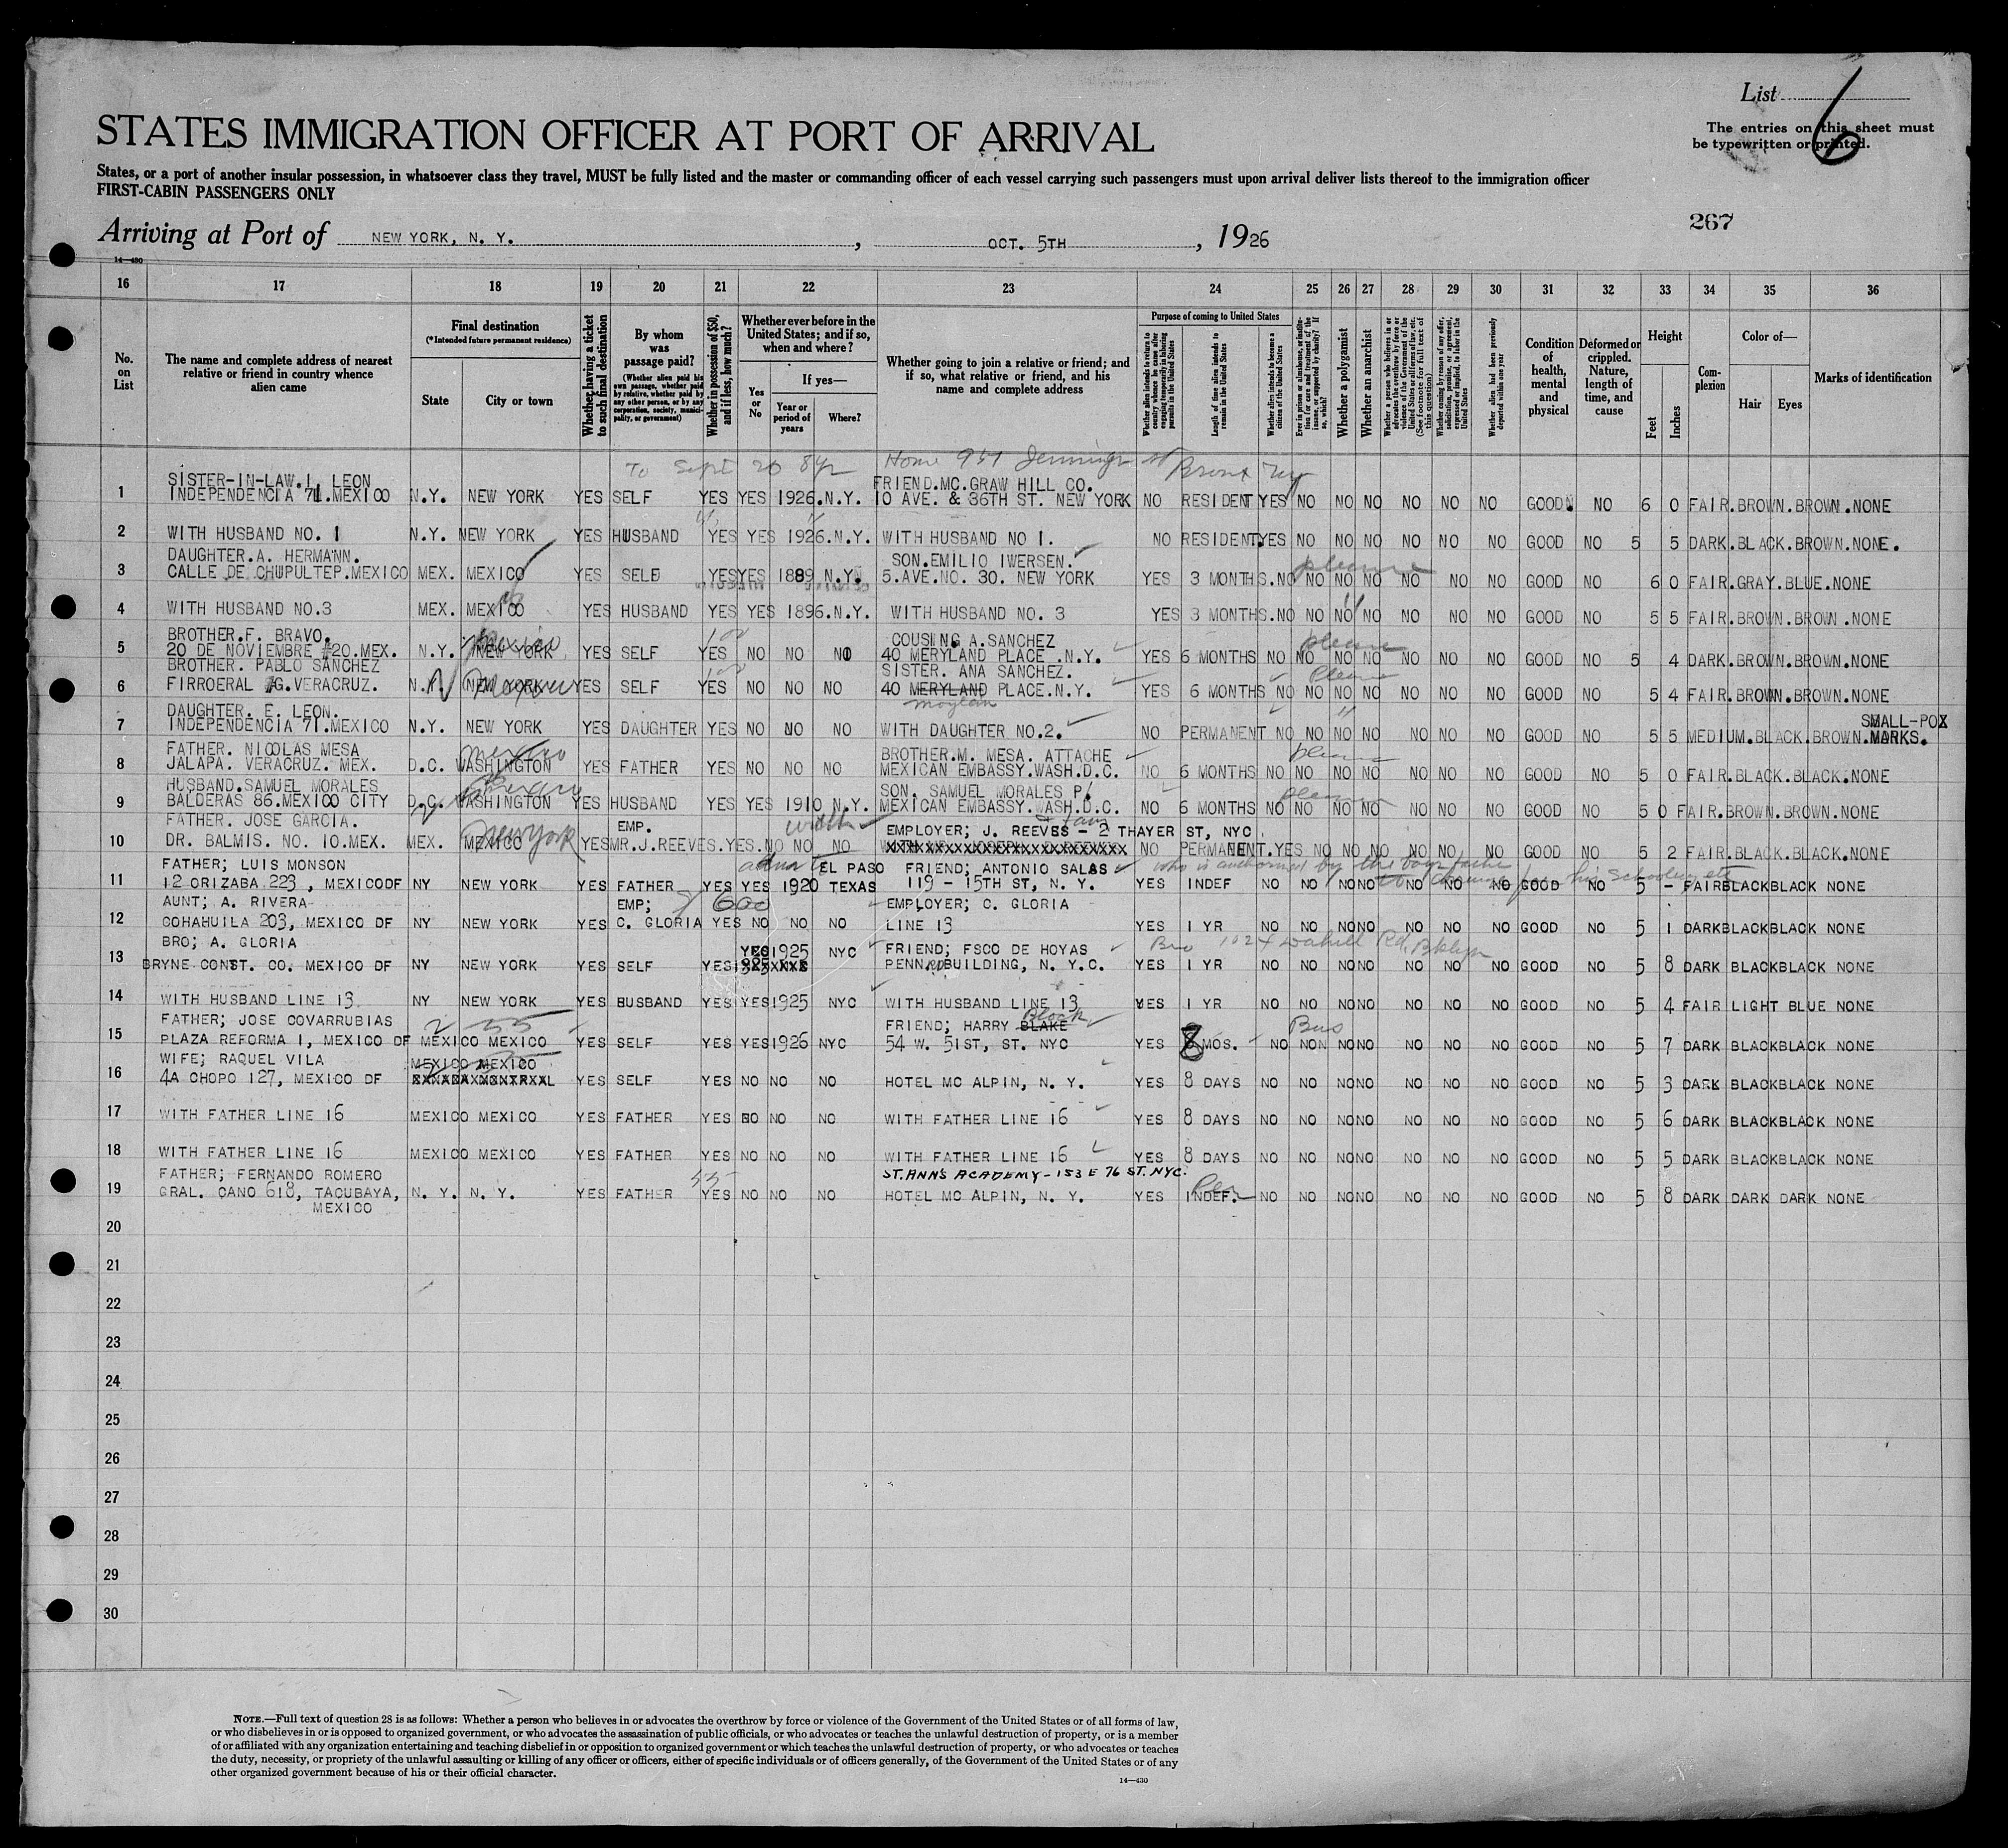 List 6
STATES IMMIGRATION OFFICER AT PORT OF ARRIVAL
The entries on this sheet must
be typewritten or printed.
States, or a port of another insular possession, in whatsoever class they travel, MUST be fully listed and the master or commanding officer of each vessel carrying such passengers must upon arrival deliver lists thereof to the immigration officer
FIRST-CABIN PASSENGERS ONLY
267
Arriving at Port of NEW YORK, N. Y. , OCT. 5TH , 1926
14—430
16 17 18 19 20 21 22 23 24 25 26 27 28 29 30 31 32 33 34 35 36
No. on List
The name and complete address of nearest relative or friend in country whence alien came
Final destination
(*Intended future permanent residence)
State City or town
Whether having a ticket to such final destination
By whom was passage paid?
(Whether alien paid his own passage, whether paid by relative, whether paid by any other person, or by any corporation, society, municipality, or government)
Whether in possession of $50, and if less, how much?
Whether ever before in the United States; and if so, when and where?
Yes or No
If yes—
Year or period of years Where?
Whether going to join a relative or friend; and if so, what relative or friend, and his name and complete address
Purpose of coming to United States
Whether alien intends to return to country whence he came after engaging temporarily in laboring pursuits in the United States
Length of time alien intends to remain in the United States
Whether alien intends to become a citizen of the United States
Ever in prison or almshouse, or institution for care and treatment of the insane, or supported by charity? If so, which?
Whether a polygamist
Whether an anarchist
Whether a person who believes in or advocates the overthrow by force or violence of the Government of the United States or all forms of law, etc. (See footnote for full text of this question)
Whether coming by reason of any offer, solicitation, promise, or agreement, expressed or implied, to labor in the United States
Whether alien had been previously deported within one year
Condition of health, mental and physical
Deformed or crippled. Nature, length of time, and cause
Height
Feet Inches
Complexion
Color of—
Hair Eyes
Marks of identification
To Sept 26 8 yr Home 951 Jennings st Bronx
SISTER-IN-LAW.I. LEON FRIEND.MC.GRAW HILL CO.
1 INDEPENDENCIA 71.MEXICO N.Y. NEW YORK YES SELF YES YES 1926.N.Y. 10 AVE. & 36TH ST. NEW YORK NO RESIDENT YES NO NO NO NO NO NO GOOD NO 6 0 FAIR.BROWN.BROWN.NONE
2 WITH HUSBAND NO. 1 N.Y. NEW YORK YES HUSBAND YES YES 1926.N.Y. WITH HUSBAND NO 1. NO RESIDENT.YES NO NO NO NO NO NO GOOD NO 5 5 DARK.BLACK.BROWN.NONE.
DAUGHTER.A. HERMANN. SON.EMILIO IWERSEN. please
3 CALLE DE CHUPULTEP.MEXICO MEX. MEXICO YES SELF YES YES 1889 N.Y. 5.AVE.NO. 30. NEW YORK YES 3 MONTHS.NO NO NO NO NO NO NO GOOD NO 6 0 FAIR.GRAY.BLUE.NONE
4 WITH HUSBAND NO.3 MEX. MEXICO YES HUSBAND YES YES 1896.N.Y. WITH HUSBAND NO. 3 YES 3 MONTHS.NO NO NO NO NO NO NO GOOD NO 5 5 FAIR.BROWN.BROWN.NONE
BROTHER.F. BRAVO. Mexico 100 COUSING A.SANCHEZ please
5 20 DE NOVIEMBRE #20.MEX. N.Y. NEW YORK YES SELF YES NO NO NO 40 MERYLAND PLACE .N.Y. YES 6 MONTHS NO NO NO NO NO NO NO GOOD NO 5 4 DARK.BROWN.BROWN.NONE
BROTHER. PABLO SANCHEZ Mexico 100 SISTER. ANA SANCHEZ. Please
6 FIRROERAL G.VERACRUZ. N.Y. NEW YORK YES SELF YES NO NO NO 40 MERYLAND PLACE.N.Y. YES 6 MONTHS NO NO NO NO NO NO NO GOOD NO 5 4 FAIR.BROWN.BROWN.NONE
DAUGHTER. E. LEON. SMALL-POX
7 INDEPENDENCIA 71.MEXICO N.Y. NEW YORK YES DAUGHTER YES NO NO NO WITH DAUGHTER NO.2. NO PERMANENT NO NO NO NO NO NO NO GOOD NO 5 5 MEDIUM.BLACK.BROWN.MARKS.
FATHER. NICOLAS MESA Mexico BROTHER.M. MESA. ATTACHE please
8 JALAPA. VERACRUZ. MEX. D.C. WASHINGTON YES FATHER YES NO NO NO MEXICAN EMBASSY.WASH.D.C. NO 6 MONTHS NO NO NO NO NO NO NO GOOD NO 5 0 FAIR.BLACK.BLACK.NONE
HUSBAND.SAMUEL MORALES Mexico SON. SAMUEL MORALES P. please
9 BALDERAS 86.MEXICO CITY D.C. WASHINGTON YES HUSBAND YES YES 1910 N.Y. MEXICAN EMBASSY.WASH.D.C. NO 6 MONTHS NO NO NO NO NO NO NO GOOD NO 5 0 FAIR.BROWN.BROWN.NONE
FATHER. JOSE GARCIA. New York EMP. with EMPLOYER; J. REEVES & fam - 2 THAYER ST, NYC
10 DR. BALMIS. NO. 10.MEX. MEX. MEXICO YES MR.J.REEVES.YES.NO NO NO NO PERMANENT.YES NO NO NO NO NO NO GOOD NO 5 2 FAIR.BLACK.BLACK.NONE
FATHER; LUIS MONSON EL PASO FRIEND; ANTONIO SALAS who is authorized by the boys father to arrange for his schooling etc
11 12 ORIZABA 223 , MEXICODF NY NEW YORK YES FATHER YES YES 1920 TEXAS 119 - 15TH ST, N. Y. YES INDEF NO NO NO NO NO NO NO GOOD NO 5 - FAIR BLACK BLACK NONE
AUNT; A. RIVERA EMP; 600 EMPLOYER; C. GLORIA
12 COHAHUILA 203, MEXICO DF NY NEW YORK YES C. GLORIA YES NO NO NO LINE 13 YES 1 YR NO NO NO NO NO NO NO GOOD NO 5 1 DARK BLACK BLACK NONE
BRO; A. GLORIA YES 1925 NYC FRIEND; FSCO DE HOYAS Bro 1024 Dahill Rd, Bklyn
13 BRYNE CONST. CO. MEXICO DF NY NEW YORK YES SELF YES PENN. BUILDING, N. Y.C. YES 1 YR NO NO NO NO NO NO NO GOOD NO 5 8 DARK BLACK BLACK NONE
14 WITH HUSBAND LINE 13 NY NEW YORK YES HUSBAND YES YES 1925 NYC WITH HUSBAND LINE 13 YES 1 YR NO NO NO NO NO NO NO GOOD NO 5 4 FAIR LIGHT BLUE NONE
FATHER; JOSE COVARRUBIAS FRIEND; HARRY BLAKE Block Bus
15 PLAZA REFORMA 1, MEXICO DF MEXICO MEXICO YES SELF YES YES 1926 NYC 54 W. 51ST, ST. NYC YES 8 MOS. NO NO NO NO NO NO NO GOOD NO 5 7 DARK BLACK BLACK NONE
WIFE; RAQUEL VILA MEXICO MEXICO
16 4A CHOPO 127, MEXICO DF YES SELF YES NO NO NO HOTEL MC ALPIN, N. Y. YES 8 DAYS NO NO NO NO NO NO NO GOOD NO 5 3 DARK BLACK BLACK NONE
17 WITH FATHER LINE 16 MEXICO MEXICO YES FATHER YES NO NO NO WITH FATHER LINE 16 YES 8 DAYS NO NO NO NO NO NO NO GOOD NO 5 6 DARK BLACK BLACK NONE
18 WITH FATHER LINE 16 MEXICO MEXICO YES FATHER YES NO NO NO WITH FATHER LINE 16 YES 8 DAYS NO NO NO NO NO NO NO GOOD NO 5 5 DARK BLACK BLACK NONE
FATHER; FERNANDO ROMERO 55 ST. ANN'S ACADEMY - 153 E 76 ST. NYC.
19 GRAL. CANO 618, TACUBAYA, N. Y. N. Y. YES FATHER YES NO NO NO HOTEL MC ALPIN, N. Y. YES INDEF. NO NO NO NO NO NO NO GOOD NO 5 8 DARK DARK DARK NONE
MEXICO
20
21
22
23
24
25
26
27
28
29
30
NOTE.—Full text of question 28 is as follows: Whether a person who believes in or advocates the overthrow by force or violence of the Government of the United States or of all forms of law,
or who disbelieves in or is opposed to organized government, or who advocates the assassination of public officials, or who advocates or teaches the unlawful destruction of property, or is a member
of or affiliated with any organization entertaining and teaching disbelief in or opposition to organized government or which teaches the unlawful destruction of property, or who advocates or teaches
the duty, necessity, or propriety of the unlawful assaulting or killing of any officer or officers, either of specific individuals or of officers generally, of the Government of the United States or of any
other organized government because of his or their official character.
14—430